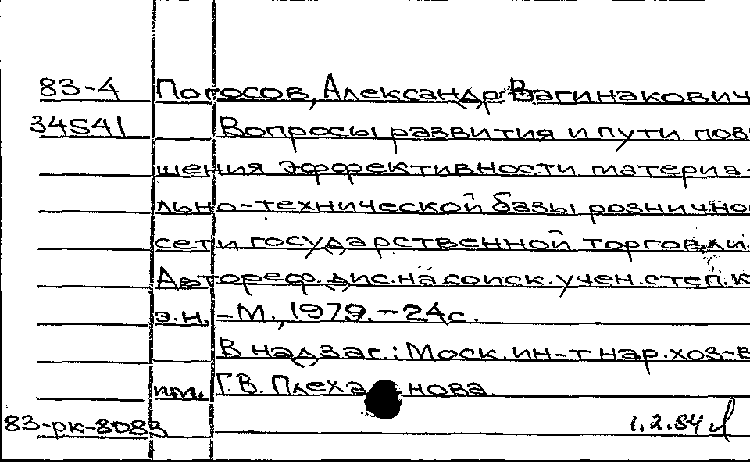 83-4 Погосов, Александр Вагинакович
34541 Вопросы развития и пути пов
шения эффективности материа-
льно-технической базы рознично
сети государственной торговли.
Автореф. дис. на соиск. учен. степ. к
э.н. -М., 1979. - 24с.
В надзаг.: Моск. ин-т нар. хоз-в
им. Г.В. Плеханова.
83-рк-8083 1.2.84